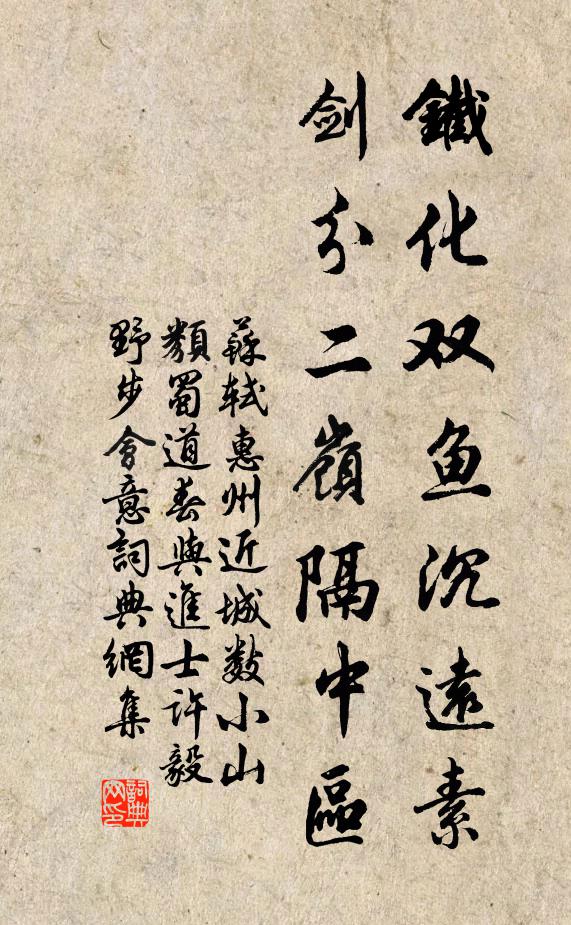 鐵化双鱼沉遠素
劍分二嶺隔中區
蘇轼惠州近城数小山
類蜀道春與進士许毅
野步會意詞典網集
詞典
网印